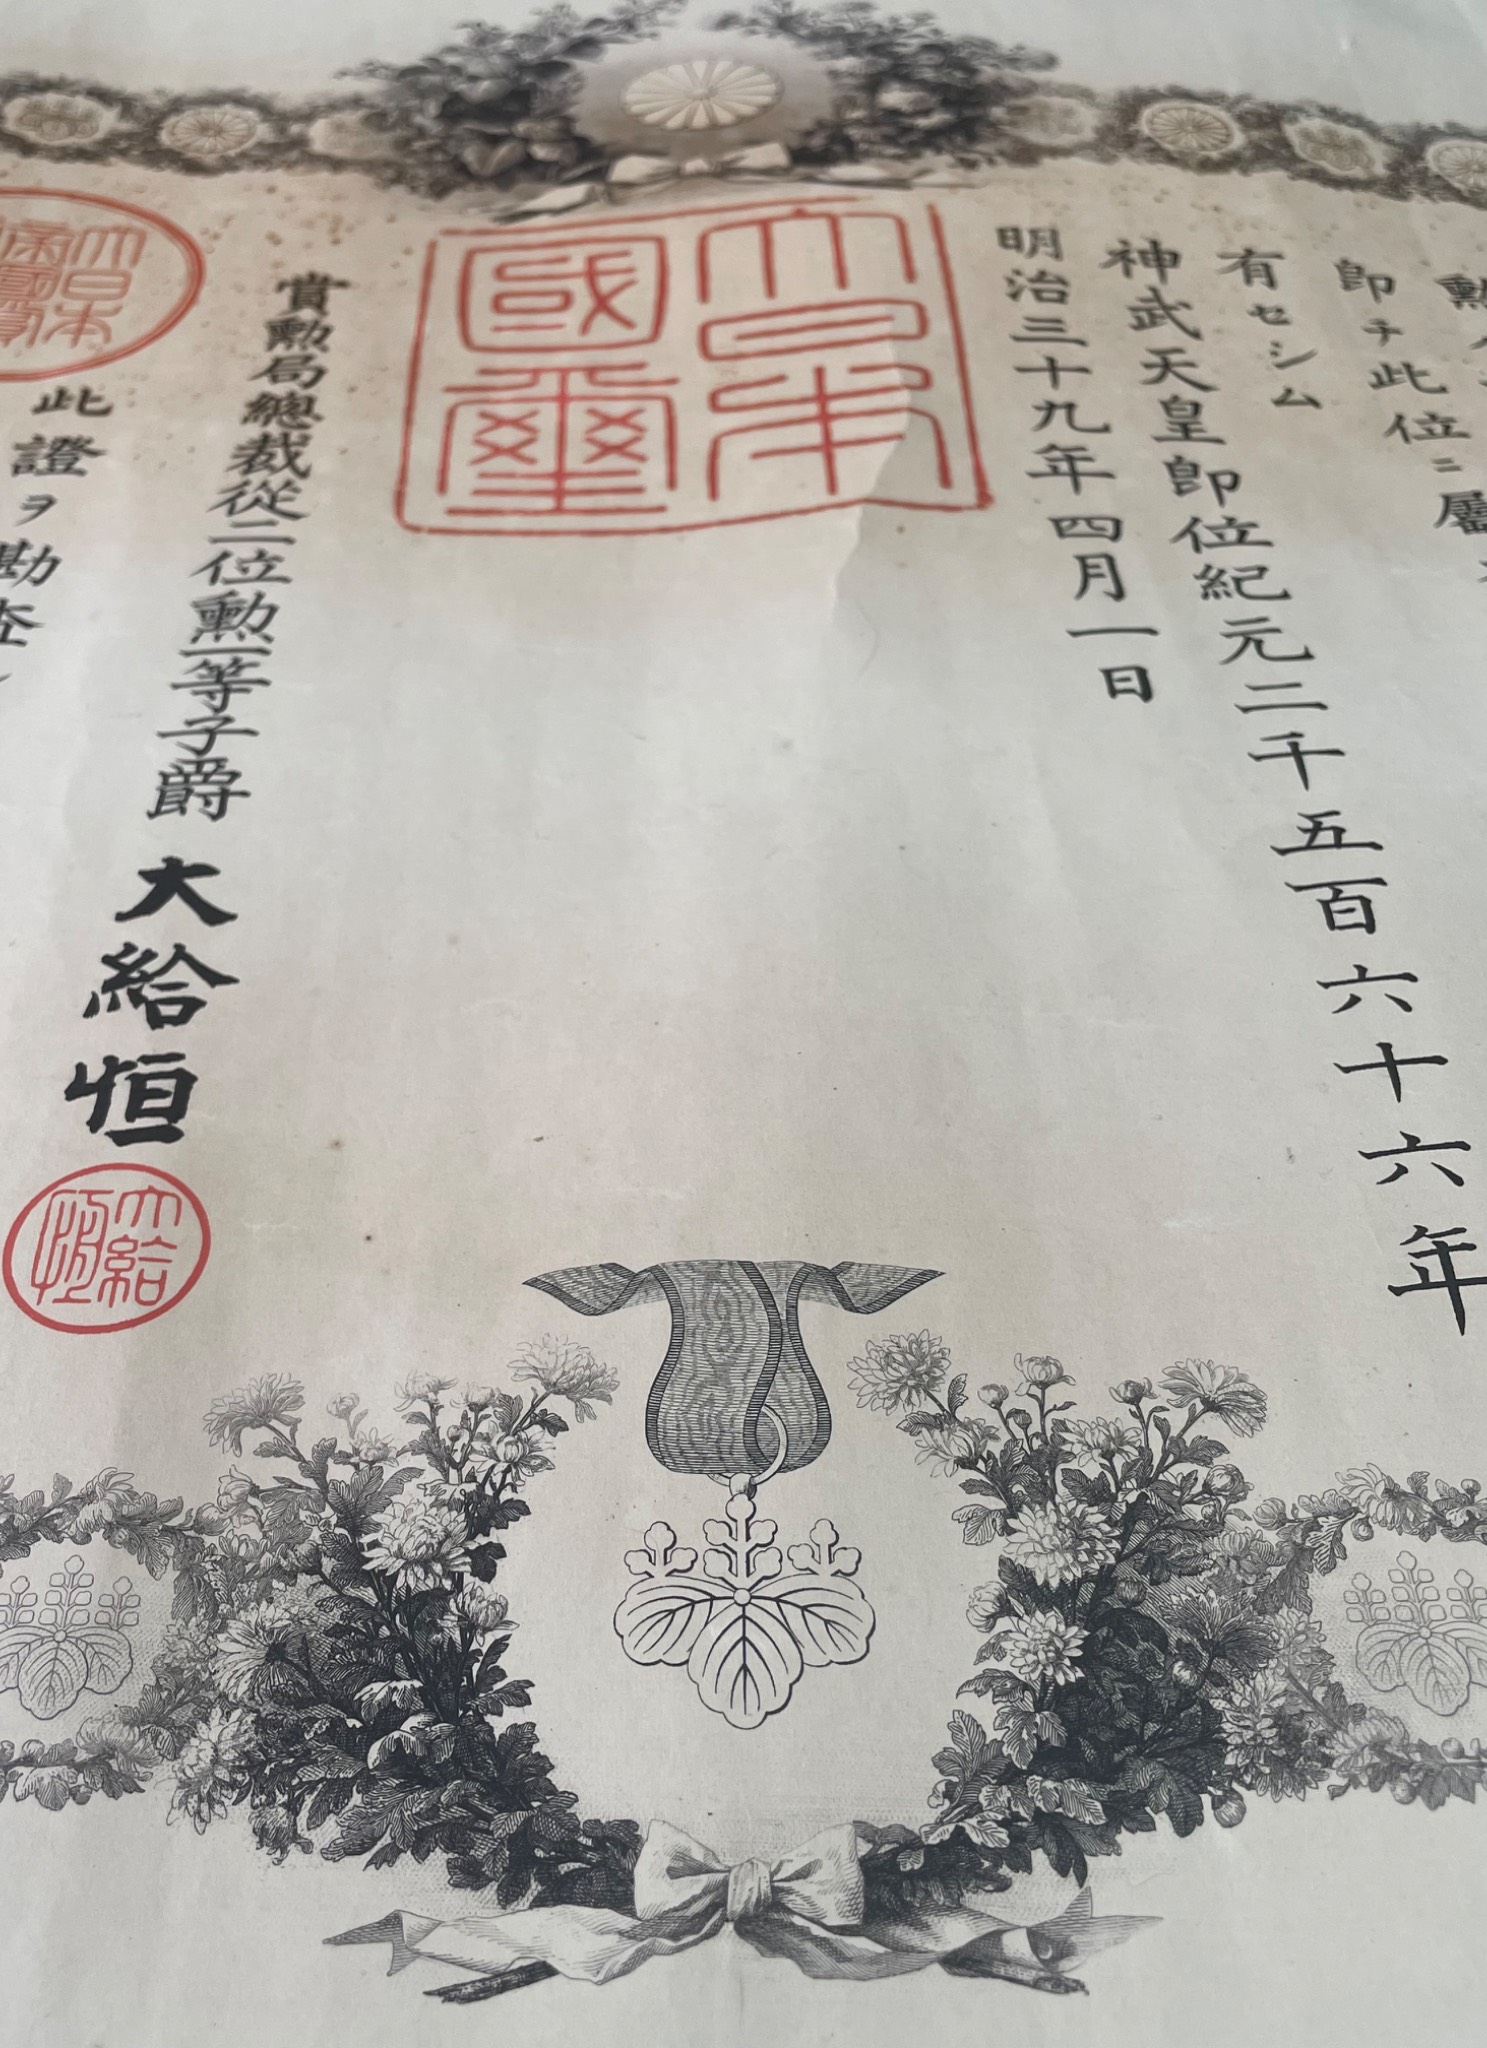 勲
即チ此位ニ屬
有セシム
神武天皇即位紀元二千五百六十六年
明治三十九年四月一日
大日本
國璽
賞勲局總裁從二位勲一等子爵 大給恒
大給
恒
大日本
此證ヲ勘査シ